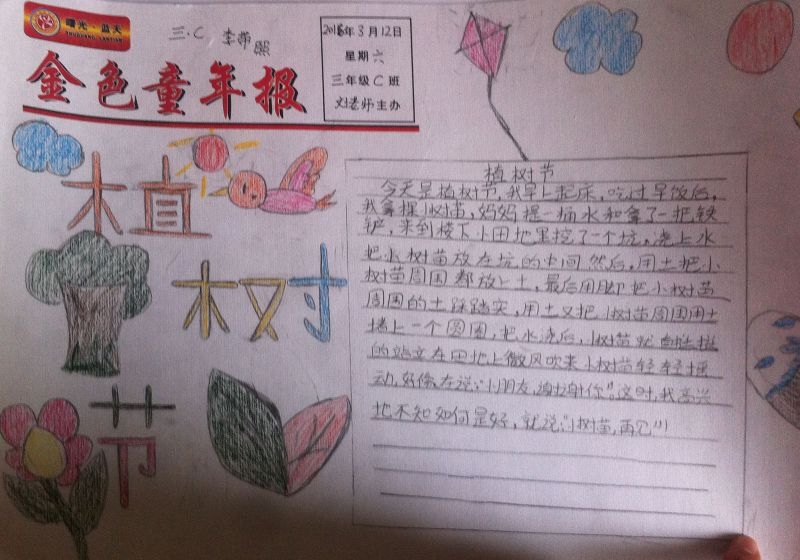 曙光·蓝天
SHUGUANG·LANTIAN
三.C 李
金色童年报
2016年3月12日
星期六
三年级C班
刘老师主办
植树节
植树节
今天是植树节,我早上起床,吃过早饭后,
我拿棵小树苗,妈妈提一桶水和拿了一把铁
铲,来到楼下小田地里挖了一个坑,浇上水
把小树苗放在坑的中间然后,用土把小
树苗周围都放上土,最后用脚把小树苗
周围的土踩踏实,用土又把小树苗周围用土
墙上一个圆圈,把水浇后,小树苗就
的站立在田地上微风吹来小树苗轻轻摇
动,好像在说:“小朋友,谢谢你”。这时,我高兴
地不知如何是好,就说:“小树苗,再见”!